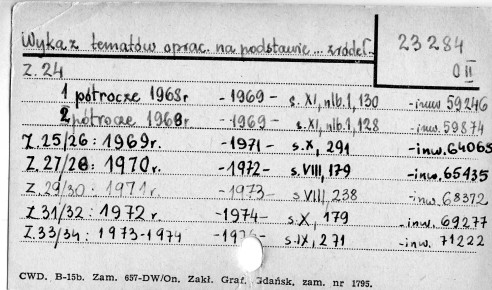 Wykaz tematów oprac. na podstawie... źródeł.
23 284
O II
Z. 24
1 półrocze 1968r - 1969 - s. XI, nlb. 1, 130 - inw 59246
2 półrocze 1968r - 1969 - s. XI, nlb. 1, 128 - inw. 59874
Z. 25/26 : 1969r. - 1971 - s. X, 291 - inw. 64065
Z. 27/28 : 1970r. - 1972 - s. VIII, 179 - inw. 65435
Z. 29/30 : 1971r. - 1973 - s VIII, 238 - inw. 68372
Z 31/32 : 1972 r. - 1974 - s. X, 179 - inw. 69277
Z. 33/34 : 1973-1974 - s. IX, 271 - inw. 71222
CWD. B-15b. Zam. 657-DW/On. Zakł. Graf. Gdańsk, zam. nr 1795.